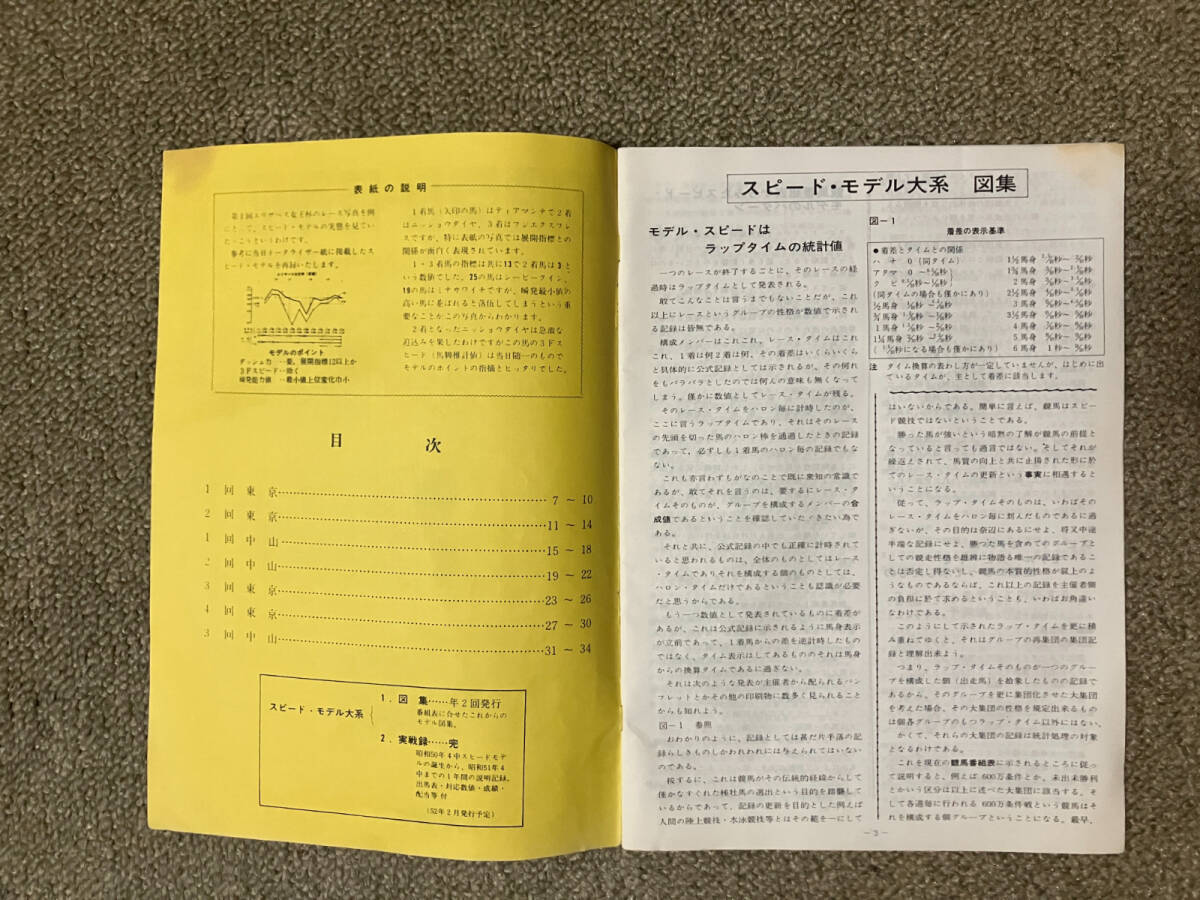 表紙の説明
第1回エリザベス女王杯のレース写真を例
にとって、スピード・モデルの実態を見てい
たゞこうというわけです。
参考に当日トータライザー紙に掲載したス
ピード・モデルを再録いたします。
モデルのポイント
ダッシュ力…要、展開指標12以上か
3Fスピード…効く
瞬発能力値…最小値上位変化巾小
1着馬（矢印の馬）はティアマンテで2着
はニッショウダイヤ、3着はフジエクスプレ
スですが、特に表紙の写真では展開指標との
関係が面白く表現されています。
1・3着馬の指標は共に13で2着馬は3と
いう数値でした。25の馬はシービークイン、
19の馬はミヤサワイチですが、瞬発最小値の
高い馬に並ばれると落伍してしまうという重
要なことがこの写真からわかります。
2着となったニッショウダイヤは急激な
追込みを果したわけですがこの馬の3Fス
ピード（馬脚推計値）は当日随一のもので
モデルのポイントの指摘とピッタリでした。
目 次
1 回 東 京 7 ～ 10
2 回 東 京 11 ～ 14
1 回 中 山 15 ～ 18
2 回 中 山 19 ～ 22
3 回 東 京 23 ～ 26
4 回 東 京 27 ～ 30
3 回 中 山 31 ～ 34
スピード・モデル大系
1．図 集……年2回発行
番組表に合せたこれからの
モデル図集。
2．実戦録……完
昭和50年4中スピードモデ
ルの誕生から、昭和51年4
中までの1年間の説明記録。
出馬表・対応数値・成績・
配当等付
（52年2月発行予定）
スピード・モデル大系 図集
モデル・スピードは
ラップタイムの統計値
一つのレースが終了するごとに、そのレースの経
過時はラップタイムとして発表される。
敢てこんなことは言うまでもないことだが、これ
以上にレースというグループの性格が数値で示され
る記録は皆無である。
構成メンバーはこれこれ、レース・タイムはこれ
これ、1着は何2着は何、その着差はいくらいくら
と具体的に公式記録としては示されるが、その何れ
をもバラバラとしたのでは何んの意味も無くなって
しまう。僅かに数値としてレース・タイムが残る。
そのレース・タイムをハロン毎に計時したのが、
ここに言うラップタイムであり、それはそのレース
の先頭を切った馬のハロン棒を通過したときの記録
であって、必ずしも1着馬のハロン毎の記録でもな
ない。
これも亦言わずもがなのことで既に衆知の常識で
あるが、敢てそれを言うのは、要するにレース・タ
イムそのものが、グループを構成するメンバーの合
成値であるということを確認していたゞきたい為で
ある。
それと共に、公式記録の中でも正確に計時されて
いると思われるものは、全体のものとしてはレース
・タイムでありそれを構成する個のものとしては、
ハロン・タイムだけであるということも認識が必要
だと思うからである。
もう一つ数値として発表されているものに着差が
あるが、これは公式記録に示されるように馬身表示
が立前であって、1着馬からの差を逆計時したもの
ではなく、タイム表示はしてあるもののそれは馬身
からの換算タイムであるに過ぎない。
それは次のような発表が主催者から配られるパン
フレットとかその他の印刷物に数多く見られること
からも知れよう。
図－1 参照
おわかりのように、記録としては甚だ片手落の記
録らしきものしかわれわれには与えられてはいない
のである。
按ずるに、これは競馬がその伝統的経緯からして
僅かなすぐれた種牡馬の選出という目的を踏襲して
いるからであって、記録の更新を目的とした例えば
人間の陸上競技・水泳競技等とはその範を一にして
図－1
着差の表示基準
●着差とタイムとの関係
ハ ナ 0（同タイム）
（同タイムの場合も僅かにあり）
注 タイム換算の表わし方が一定していませんが、はじめに出
ているタイムが、主として着差に該当します。
はいないからである。簡単に言えば、競馬はスピー
ド競技ではないということである。
勝った馬が強いという暗黙の了解が競馬の前提と
なっていると言っても過言ではない。そしてそれが
繰返えされて、馬質の向上と共に止揚された形に於
てのレース・タイムの更新という事実に相遇すると
いうことになる。
従って、ラップ・タイムそのものは、いわばその
レース・タイムをハロン毎に刻んだものであるに過
ぎないが、その目的は奈辺にあるにせよ、将又中途
半端な記録にせよ、勝つた馬を含めてのグループと
しての競走性格を雄辯に物語る唯一の記録であるこ
とは否定し得ないし、競馬の本質的性格が以上のよ
うなものであるならば、これ以上の記録を主催者側
の負担に於て求めるということも、いわばお角違い
なわけである。
このようにして示されたラップ・タイムを更に積
み重ねてゆくと、それはグループの再集団の集団記
録と理解出来よう。
つまり、ラップ・タイムそのものが一つのグルー
プを構成した個（出走馬）を捨象したものの記録で
あるから、そのグループを更に集団化させた大集団
を考えた場合、その大集団の性格を規定出来るもの
は個各グループのもつラップ・タイム以外にはない。
かくて、それらの大集団の記録は統計処理の対象
となるわけである。
これを現在の競馬番組表に示されるところに従っ
て説明すると、例えば600万条件とか、未出未勝利
とかいう区分は以上に述べた大集団に該当する。そ
して各週毎に行われる600万条件戦という競馬はそ
れを構成する個グループということになる。最早、
－3－